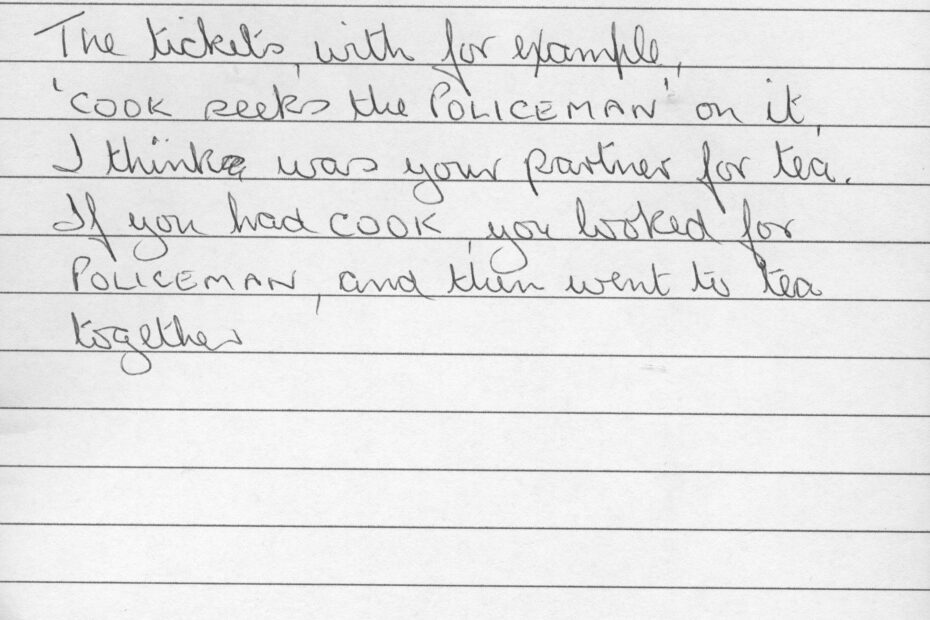 The tickets, with for example,
'COOK seeks the POLICEMAN' on it,
I think was your partner for tea.
If you had COOK, you looked for
POLICEMAN, and then went to tea
together